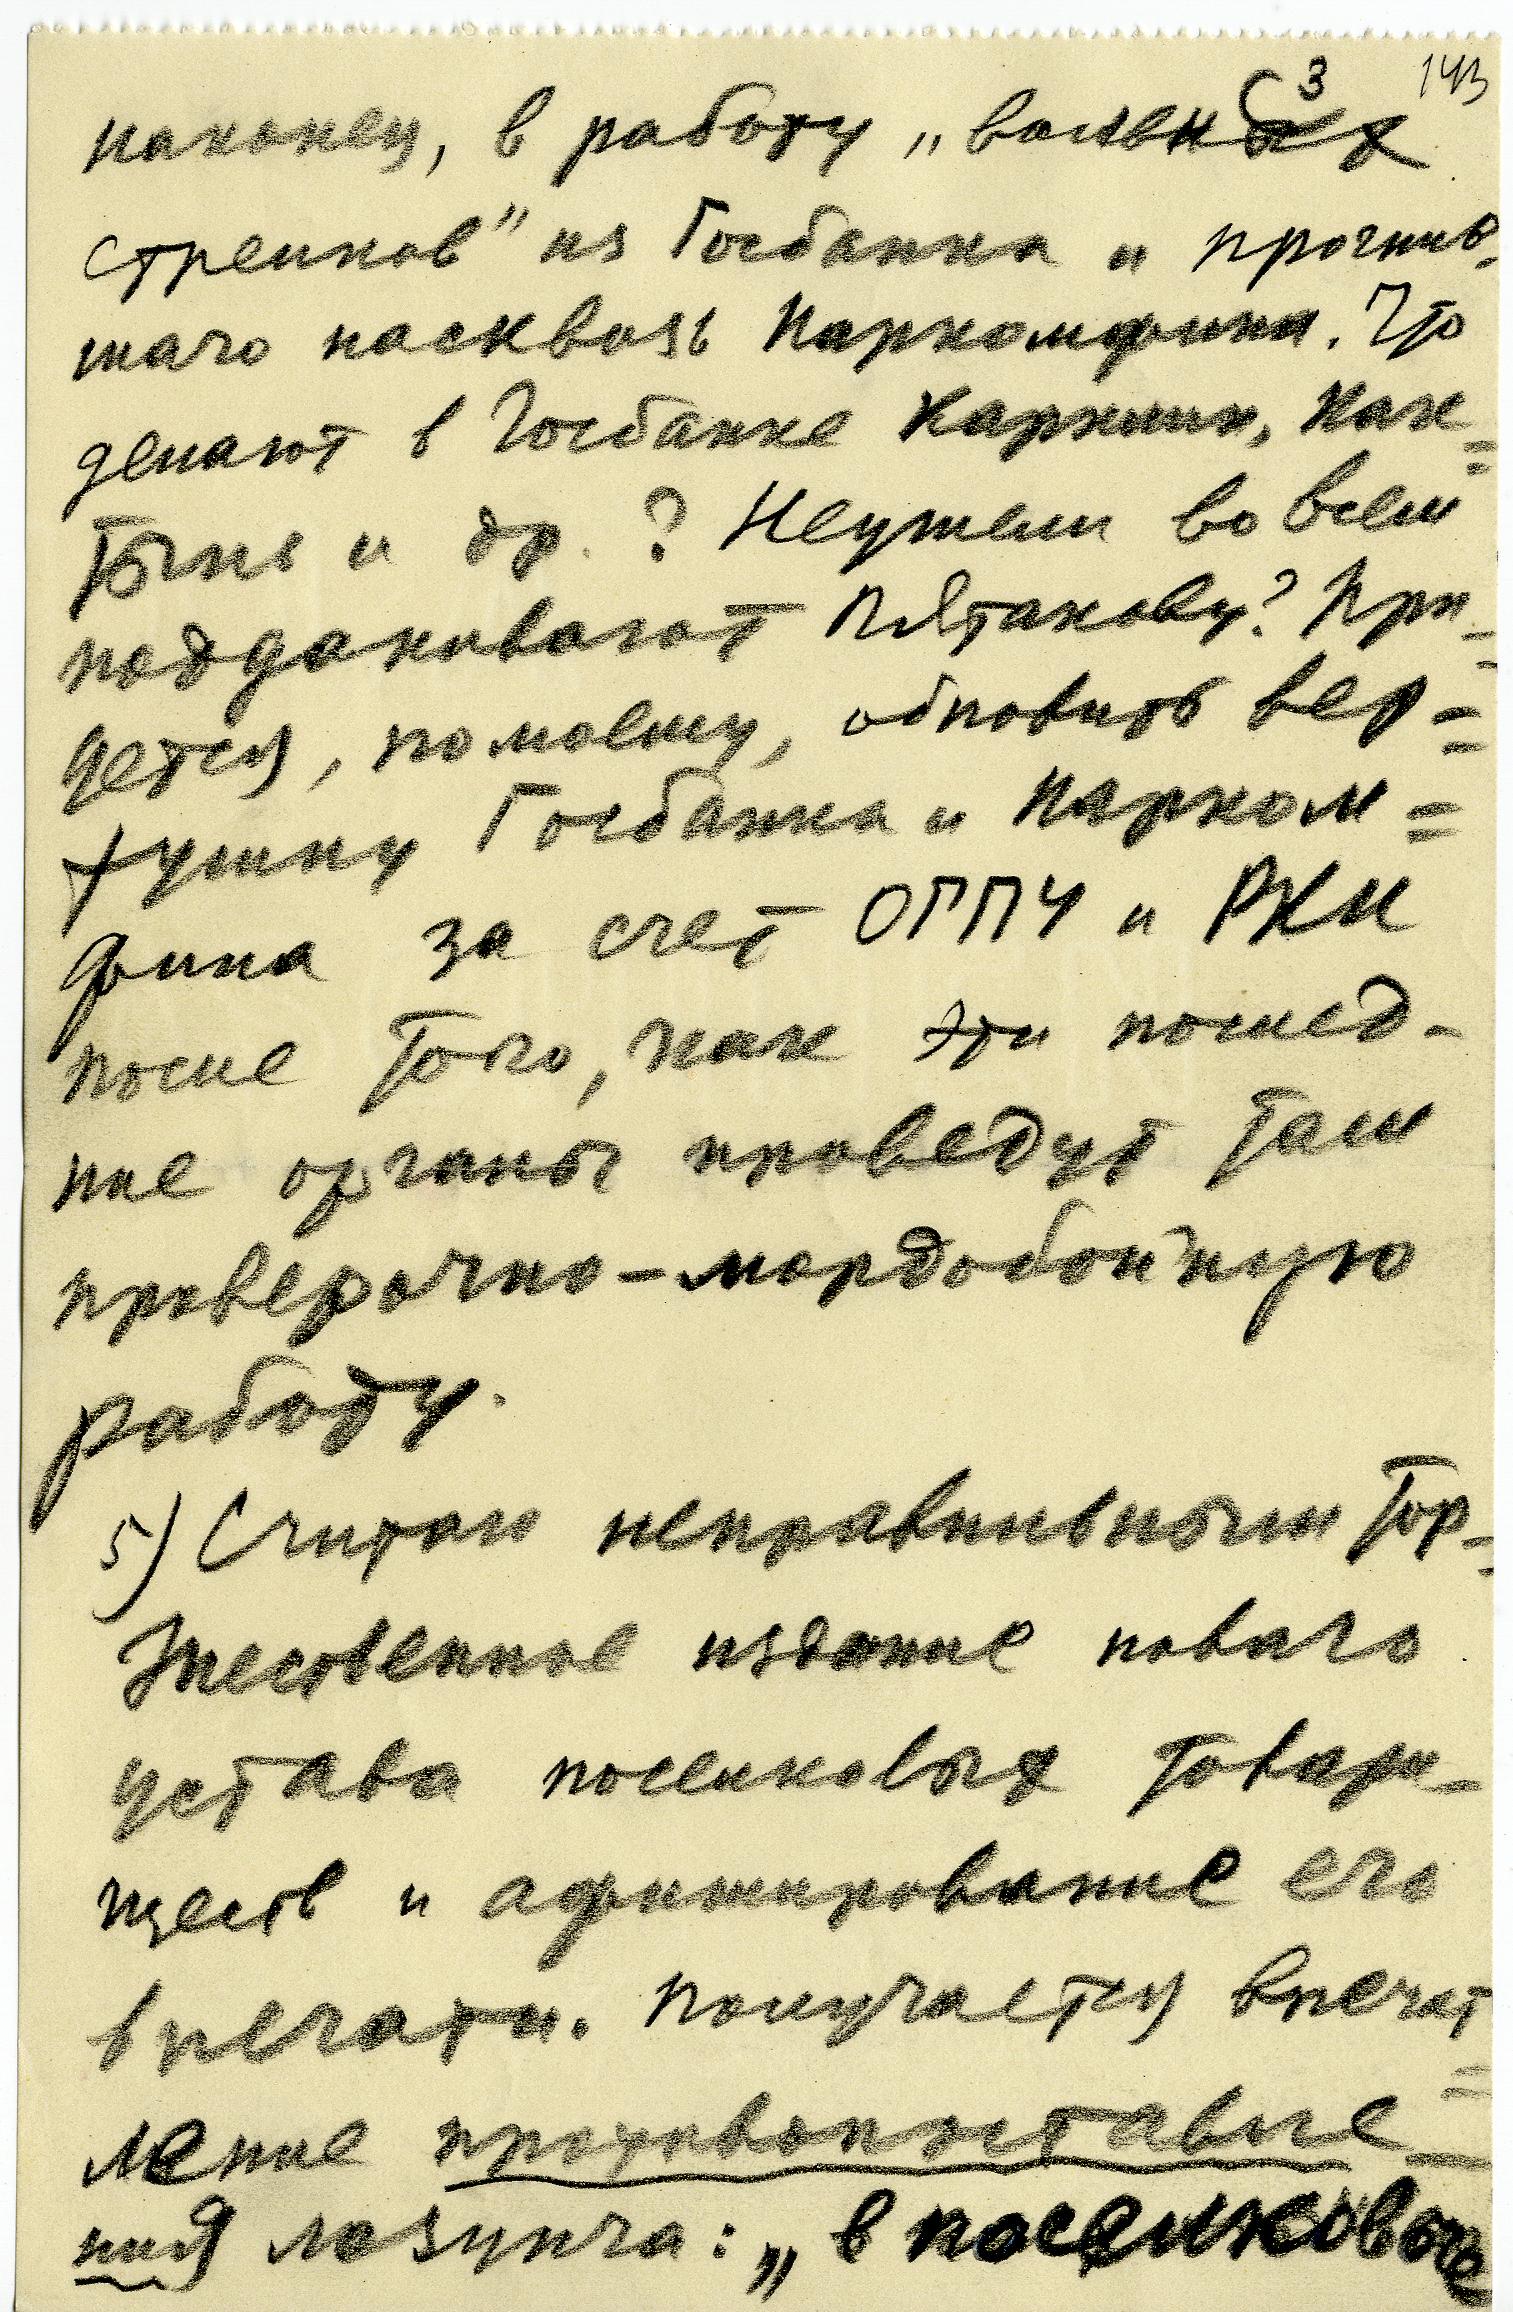 3 143
наконец, в работу „вольных
стрелков" из Госбанка и прогнив-
шаго насквозь Наркомфина. Что
делают в Госбанке Каркмин, Как-
тынь и др.? Неужели во всем
поддакивают Пятакову? При-
дется, помоему, обновить вер-
хушку Госбанка и Нарком-
фина за счет ОГПУ и РКИ
после того, как эти послед-
ние органы проведут там
проверочно-мордобойную
работу.
5) Считаю неправильным тор-
жественное издание новаго
устава поселковых товари-
ществ и афиширование его
в печати. Получается впечат-
ление противопоставле-
ния лозунга: „в поселковые